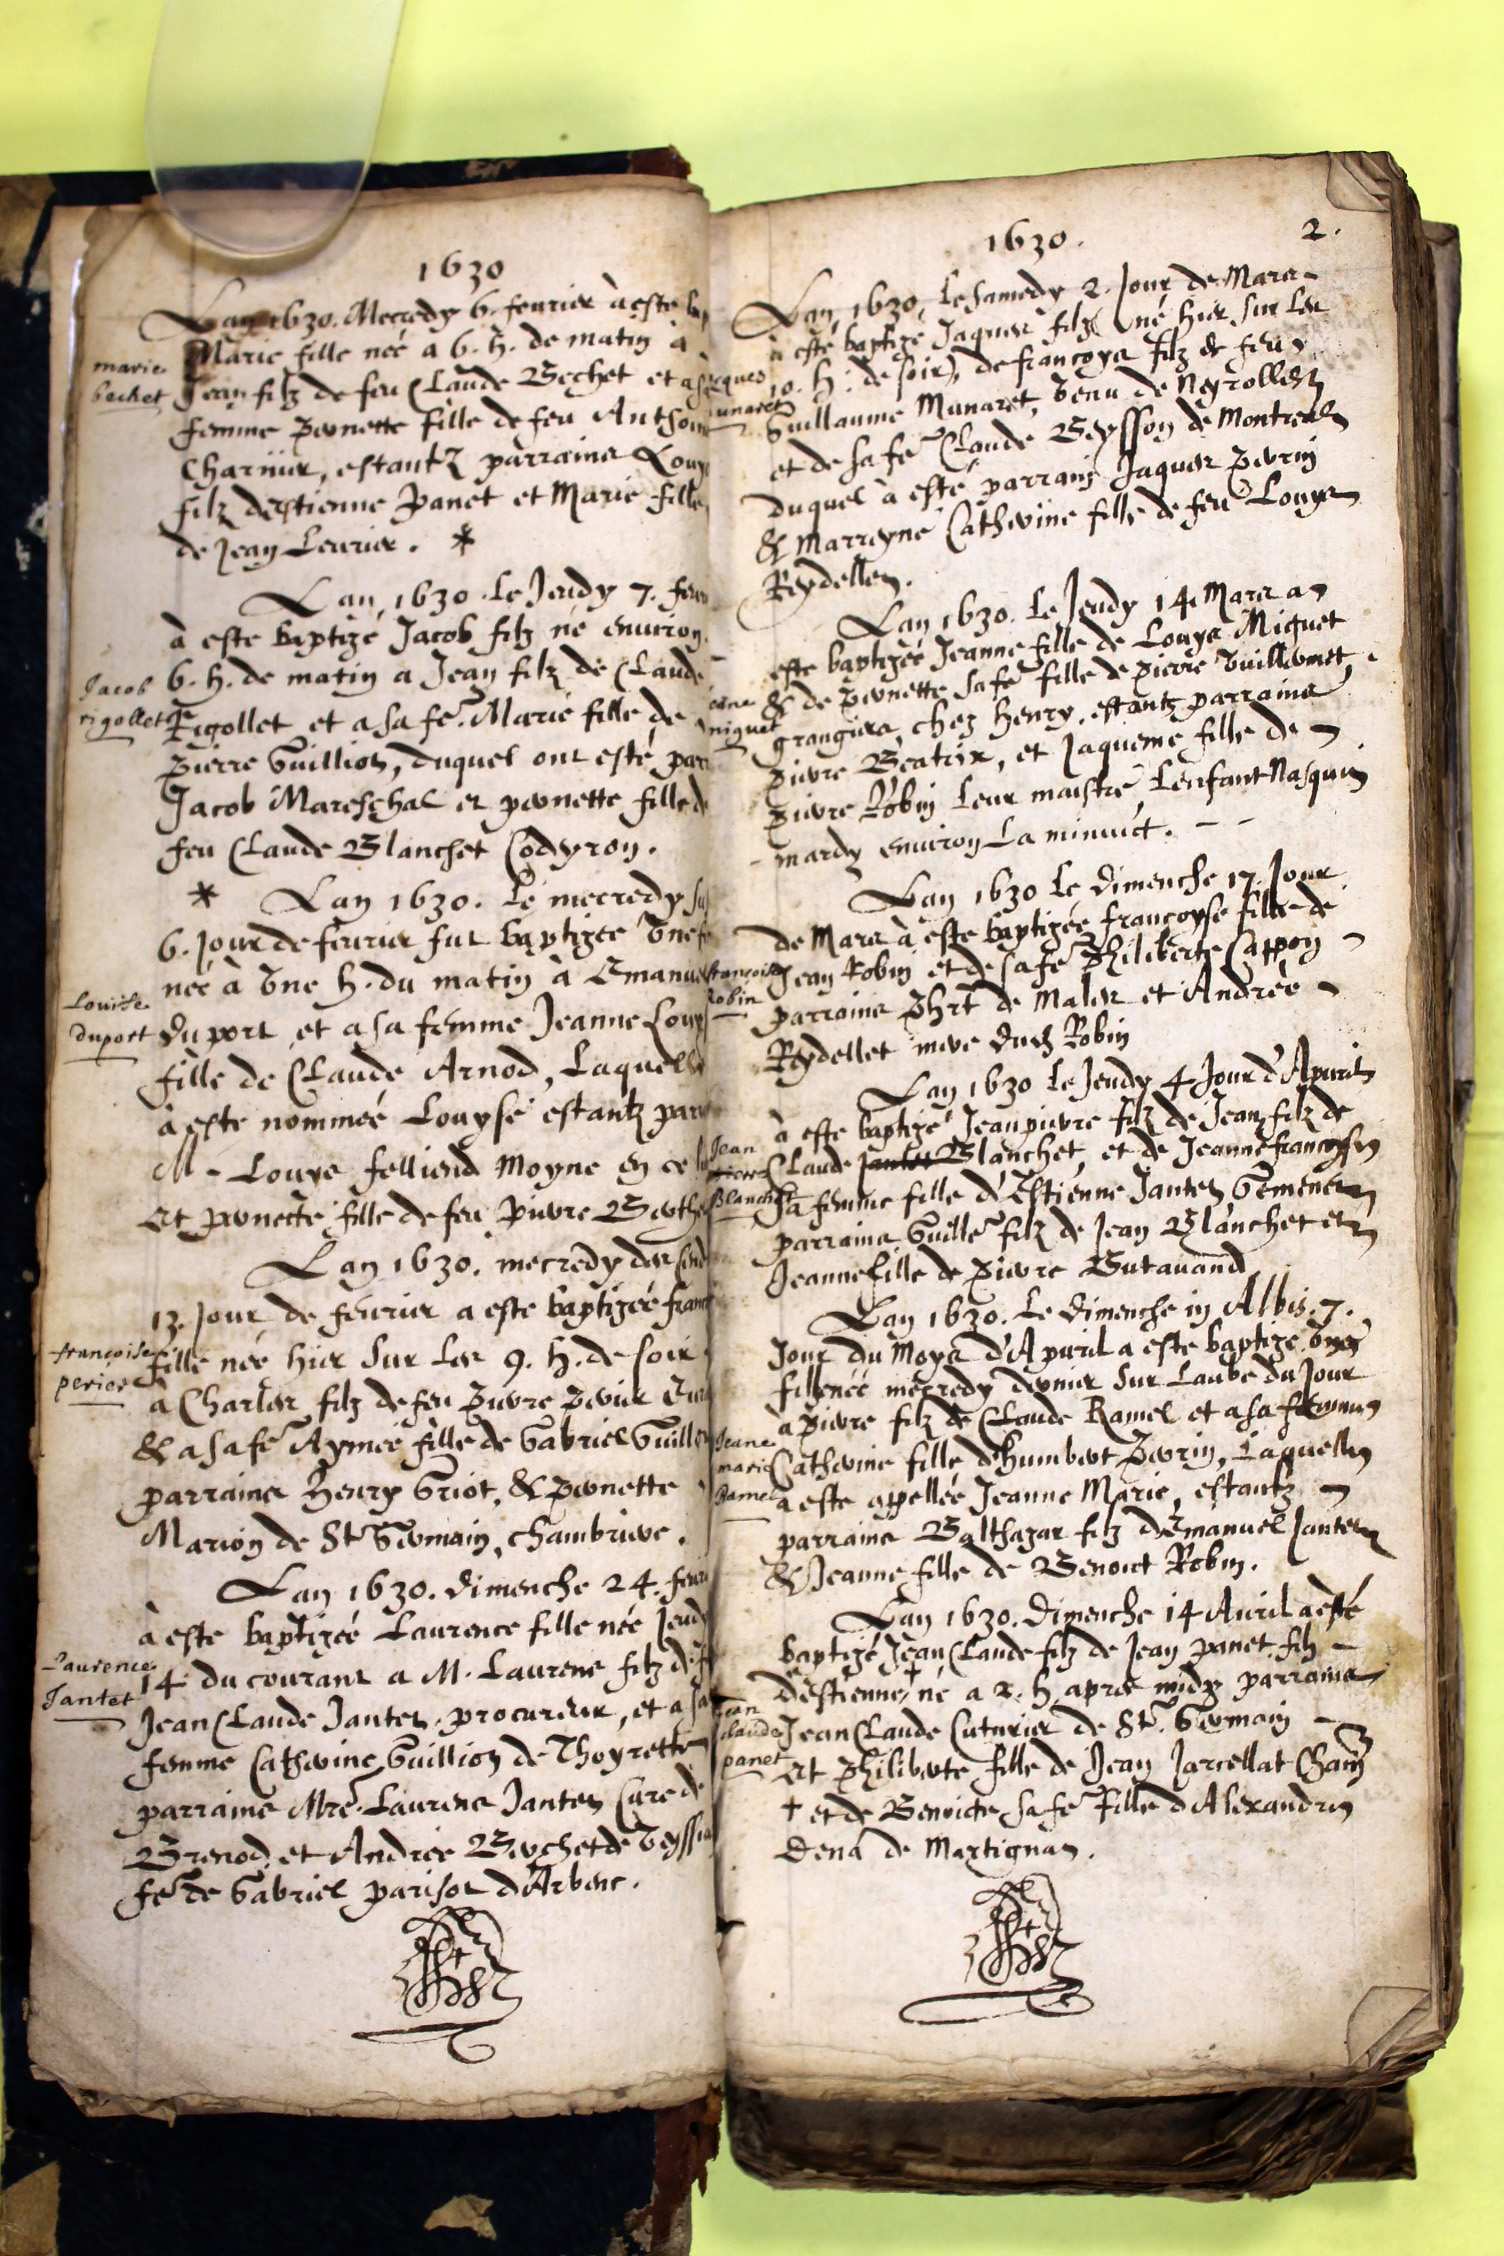 1630
Lan 1630. Mecredy 6. feurier à esté bap
Marie fille neé a 6. h. de matin à
marie
bechet
Jean filz de feu Claude Bechet et a sa
femme Pernette fille de feu Anthoine
Charnier, estantz parrains Louys
filz destienne Panet et Marie fille
de Jean Leurier. *
Lan 1630. Le Jeudy 7. feur
à esté baptizé Jacob filz né enuiron
Jacob
rigollet
6. h. de matin a Jean filz de Claude
Rigollet et a sa fe. Marie fille de
Pierre Guillion, duquel ont esté par
Jacob Mareschal et pernette fille de
feu Claude Blanchet Coderon.
* Lan 1630. Le mecredy su
6. Jour de feurier fut baptizeé Vne f
neé à Vne h. du matin à Emanuel
Louise
duport
du port et a sa femme Jeanne Louys
fille de Claude Arnod, Laquelle
à esté nommeé Louyse estantz parr
M. Louys felliend Moyne en ce
et pernette fille de feu Pierre Berthe
Lan 1630. mecredy des Cend
13. Jour de feurier a esté baptizeé franc
françoise
perier
fille neé hier sur les 9. h. de soir
à Charles filz de feu Pierre Perier
& a sa fe Aymeé fille de Gabriel Guille
parrains Henry Griot, & pernette
Marion de St Germain, chambriere.
Lan 1630. Dimenche 24. feur
à esté baptizeé Laurence fille neé Jeudy
Laurence
Jantet
14 du courant a M. Laurens filz de f
Jean Claude Jantet procureur, et a sa
femme Catherine Guillion de Thoyrette
parrains Mre. Laurens Jantet Cure de
Brenod et Andreé Berchet de Veyssia
fe de Gabriel parisot d'Arbenc.
1630. 2.
Lan 1630, Le samedy 2. Jour de Mars
à esté baptizé Jaques filz (né hier sur les
10. h. de soir), de françoys filz de feu
acques
munaret
Guillaume Munaret, Venu de Neyrolles
et de sa fe Claude Beysson de Montreal
duquel à esté parrain Jaques Perrin
& Marreyne Catherine fille de feu Louys
Reydellet.
Lan 1630. Le Jeudy 14 Mars a
esté baptizeé Jeanne fille de Louys Miguet
& de Pernette sa fe fille de Pierre Vuillermet,
jeane
miguet
grangiers, chez Henry, estantz parrains
Pierre Beatrix, et Jaqueme fille de
Pierre Robin Leur maistre, Lenfant Nasquit
mardy enuiron La minuict.
Lan 1630 Le Dimenche 17. Jour
de Mars à esté baptizeé françoyse fille de
françoise
robin
Jean Robin et de sa fe Philiberte Cappon
parrains Phrt de Males et Andreé
Reydellet mere dud Robin
Lan 1630 Le Jeudy 4 Jour d'Apuril
à esté baptizé Jean pierre filz de Jean filz de
Jean
pierre
Blanchet
Claude Jantet Blanchet, et de Jeanne françoyse
sa femme fille d'Estienne Jantet
parrains Guille filz de Jean Blanchet et
Jeanne fille de Pierre Butauand
Lan 1630. Le Dimenche in Albis. 7.
Jour du Moys d'Apuril a esté baptizé Vne
fille neé mecredy dernier sur Laube du Jour
à Pierre filz de Claude Ramel et a sa femme
Jeane
marie
Ramel
Catherine fille d'humbert Perrin, Laquelle
a esté appelleé Jeanne Marie, estantz
parrains Balthazar filz d'Emanuel Jantet
& Jeanne fille de Benoict Robin.
Lan 1630. Dimenche 14 Auril a esté
baptizé Jean Claude filz de Jean panet filz
d'Estienne, + né a 2. h apres midy parrains
Jean
claude
panet
Jean Claude Cuturier de St. Germain
et Philiberte fille de Jean Jarcellat
+ et de Benoicte sa fe fille d'Alexandre
Dena de Martignat.